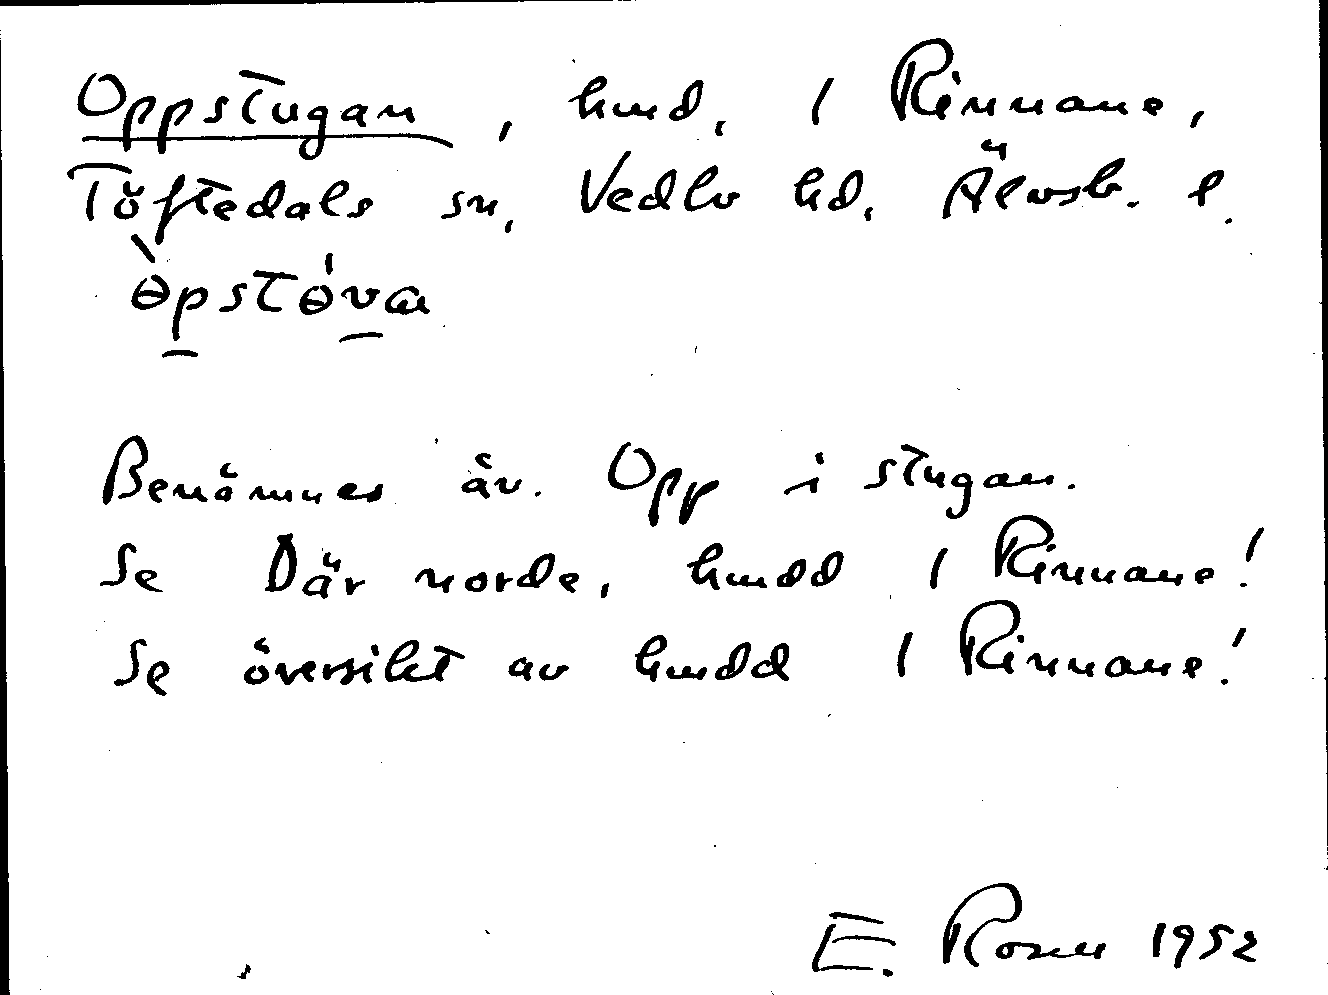 Oppstugan, hmd, 1 Rinnane,
Töftedals sn, Vedbo hd, Älvsb. l.
ɵ̀pstɵ́va
Benämnes äv. Opp i stugan.
Se Där norde, hmdd 1 Rinnane!
Se översikt av hmdd 1 Rinnane!
E. Rosen 1952